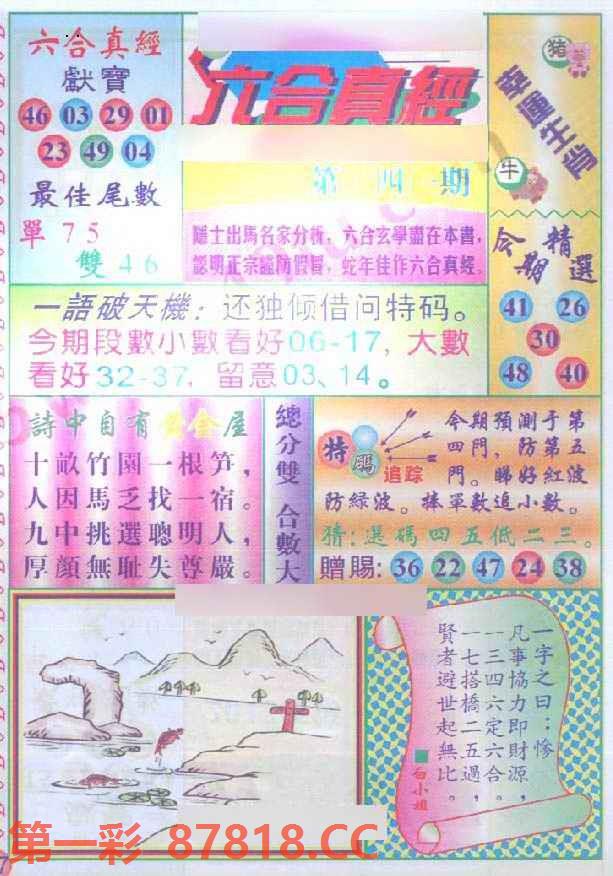 六合真經
獻寶
46 03 29 01
23 49 04
最佳尾數
單75
雙46
六合真經
第 四 期
隱士出馬名家分析，六合玄學盡在本書，
認明正宗謹防假冒，蛇年佳作六合真經。
豬
羊
幸運生肖
牛
今期
精選
41 26
30
48 40
一語破天機：还独倾借问特码。
今期段數小數看好06-17，大數
看好32-37，留意03、14。
詩中自有黃金屋
十畝竹園一根笋，
人因馬乏找一宿。
九中挑選聰明人，
厚顔無耻失尊嚴。
總分雙 合數大
特
碼
追踪
今期預測于第
四門，防第五
門。睇好紅波
防緑波。捧單數追小數。
猜：選碼四五低二三。
贈賜：36 22 47 24 38
一字之曰：慘
凡事協力即財源，
一三四六定六合。
一七搭橋二五過，
賢者避世起無比。
白小姐
第一彩 87818.CC